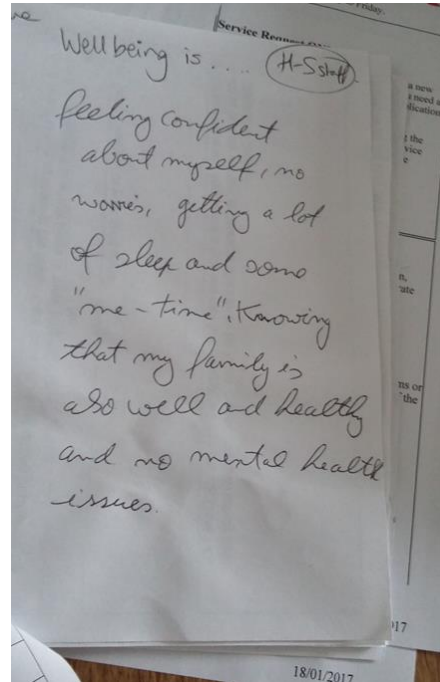 Friday.
Service Request
Wellbeing is .... H-S staff
feeling confident
about myself, no
worries, getting a lot
of sleep and some
"me-time". Knowing
that my family is
also well and healthy
and no mental health
issues.
a new
need a
the
vice
ms or
the
18/01/2017